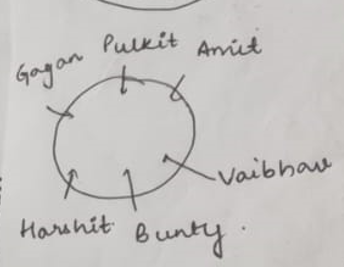 Gagan Pulkit Amit
Vaibhav
Harshit Bunty.